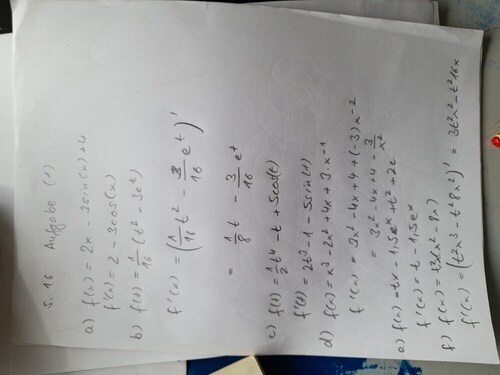 S. 16 Aufgabe (1)
a) f(x) = 2x - 3sin(x) + 4
f'(x) = 2 - 3cos(x)
b) f(t) = 1/16 (t² - 3e^t)
f'(x) = (1/16 t² - 3/16 e^t)'
= 1/8 t - 3/16 e^t
c) f(t) = 1/2 t⁴ - t + 5cos(t)
f'(t) = 2t³ - 1 - 5sin(t)
d) f(x) = x³ - 2x² + 4x + 3·x⁻¹
f'(x) = 3x² - 4x + 4 + (-3)x⁻²
= 3x² - 4x + 4 - 3/x²
e) f(x) = tx - 1,5e^x + t² + 2t
f'(x) = t - 1,5e^x
f) f(x) = t²x(x² - 8x)
f'(x) = (t²x³ - t²8x²)' = 3t²x² - t²16x